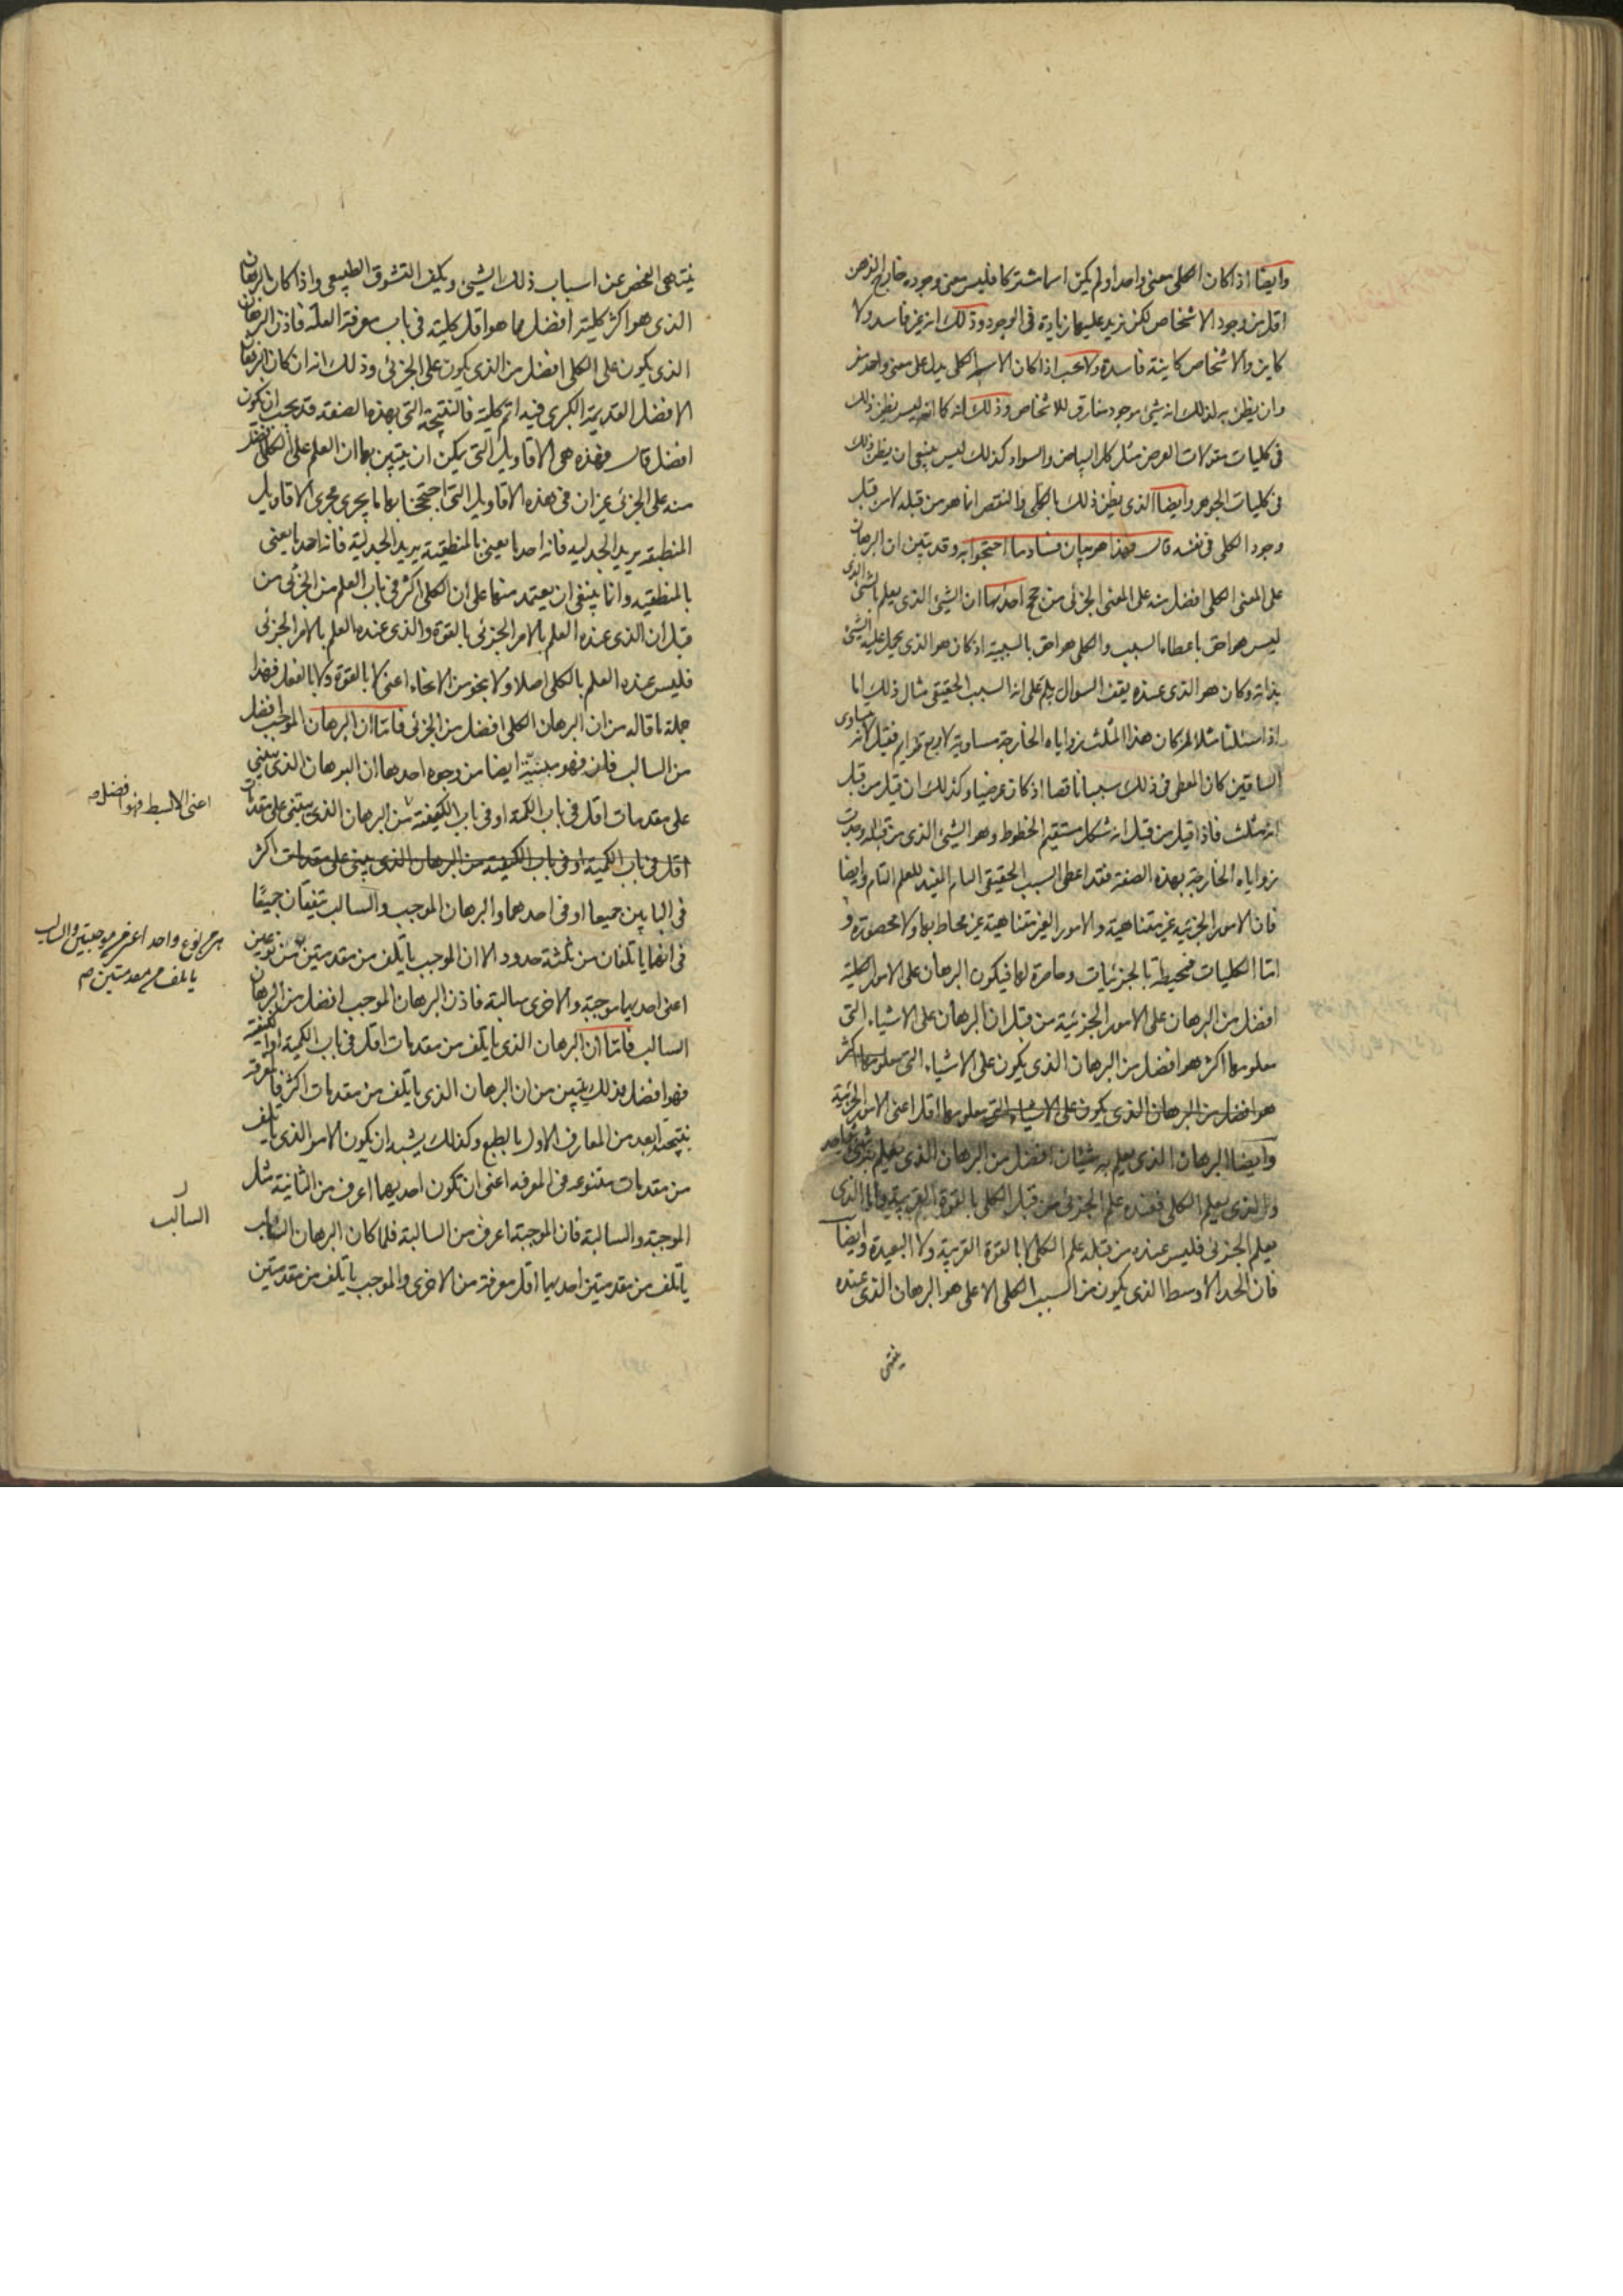 وايضا اذا كان الكلى معنى واحدا ولم يكن اسما مشتركا فليس معنى وجوده خارج الذهن
اقل من وجود الاشخاص لكن يزيد عليها زيادة فى الوجود وذلك انه غير فاسد ولا
كاين والاشخاص كاينة فاسدة ولا يجب اذا كان الاسم الكلى يدل على معنى واحد
وان يظن به لذلك انه شئ موجود مفارق للاشخاص وذلك انه كما انه ليس يظن ذلك
فى كليات مقولات العرض مثل كل البياض والسواد كذلك ليس ينبغى ان يظن ذلك
فى كليات الجوهر وايضا الذى يظن ذلك بالكلى فالنقص انما هو من قبله لا من قبل
وجود الكلى فى نفسه قال فهذا هو بيان فساد ما احتجوا به وقد يتبين ان البرهان
على المعنى الكلى افضل منه على المعنى الجزئى من حجج احدها ان الشئ الذى يعلم بالشئ الذى
ليس هو احق باعطاء السبب والكلى هو احق بالسببية اذ كان هو الذى يحمل عليه الشئ
بذاته وكان هو الذى عنده يقف السوال بلم على انه السبب الحقيقى مثال ذلك انا
اذا سئلنا مثلا لم كان هذا المثلث زواياه الخارجة مساوية لاربع قوايم فقيل لانه متساوى
الساقين كان المعطى فى ذلك سببا ناقصا اذ كان عرضيا وكذلك ان قيل من قبل
انه مثلث فاذا قيل من قبل انه شكل مستقيم الخطوط وهو الشئ الذى من قبله وجدت
زواياه الخارجة بهذه الصفة فقد اعطى السبب الحقيقى التام المفيد للعلم التام وايضا
فان الامور الجزئية غير متناهية والامور الغير متناهية غير محاط بها ولا محصورة و
اما الكليات فمحيطة بالجزئيات وحاصرة لها فيكون البرهان على الامور الكلية
افضل من البرهان على الامور الجزئية من قبل ان البرهان على الاشياء التى
معلومها اكثر هو افضل من البرهان الذى يكون على الاشياء التى معلومها اكثر
هو افضل من البرهان الذى يكون على الاشياء التى معلومها اقل اعنى الامور الجزئية
وايضا البرهان الذى يعلم به شيئان افضل من البرهان الذى يعلم به شئ واحد
والذى يعلم الكلى فعنده علم الجزئى من قبل الكلى بالقوة القريبة واما الذى
يعلم الجزئى فليس عنده من قبله علم الكلى لا بالقوة القريبة ولا البعيدة وايضا
فان الحد الاوسط الذى يكون من السبب الكلى الاعلى هو البرهان الذى عنده
ينتهى
ينتهى الفحص عن اسباب ذلك الشئ ويكف التشوق الطبيعى واذا كان البرهان
الذى هو اكثر كلية افضل مما هو اقل كلية فى باب معرفة العلة فاذن البرهان
الذى يكون على الكلى افضل من الذى يكون على الجزئى وذلك انه ان كان البرهان
الافضل المقدمة الكبرى فيه اتم كلية فالنتيجة التى بهذه الصفة قد يجب ان تكون
افضل قال فهذه هى الاقاويل التى يمكن ان يتبين بها ان العلم على الكلى افضل
منه على الجزئى غير ان فى هذه الاقاويل التى احتججنا بها ما يجرى مجرى الاقاويل
المنطقية يريد الجدلية فانه احد ما يعنى بالمنطقية يريد الجدلية فانه احد ما يعنى
بالمنطقية وانما ينبغى ان يعتمد منها على ان الكلى اكثر فى باب العلم من الجزئى من
قبل ان الذى عنده العلم بالامر الجزئى بالقوة والذى عنده العلم بالامر الجزئى
فليس عنده العلم بالكلى اصلا ولا بنحو من الانحاء اعنى لا بالقوة ولا بالفعل فهذا
جملة ما قاله من ان البرهان الكلى افضل من الجزئى فاما ان البرهان الموجب افضل
من السالب فلن فهو مبينه ايضا من وجوه احدها ان البرهان الذى يبنى
على مقدمات اقل فى باب الكمية او فى باب الكيفية من البرهان الذى يبنى على مقدمات
اعنى الابسط فهو افضل
اقل فى باب الكمية او فى باب الكيفية من البرهان الذى يبنى على مقدمات اكثر
فى البابين جميعا او فى احدهما والبرهان الموجب والسالب يتفقان جميعا
فى انهما ياتلفان من ثلثة حدود الا ان الموجب ياتلف من مقدمتين من نوعين
من نوع واحد اعنى من موجبتين والسالب
ياتلف من مقدمتين
اعنى احديهما موجبة والاخرى سالبة فاذن البرهان الموجب افضل من البرهان
السالب فاما ان البرهان الذى ياتلف من مقدمات اقل فى باب الكمية او الكيفية
فهو افضل فذلك يتبين من ان البرهان الذى ياتلف من مقدمات اكثر فالمعرفة
بنتيجته ابعد من المعارف الاول بالطبع وكذلك يشبه ان يكون الامر الذى ياتلف
من مقدمات متنوعة فى المعرفة اعنى ان تكون احديهما اعرف من الثانية مثل
الموجبة والسالبة فان الموجبة اعرف من السالبة فلما كان البرهان السالب
السالب
ياتلف من مقدمتين احديهما اقل معرفة من الاخرى والموجب ياتلف من مقدمتين